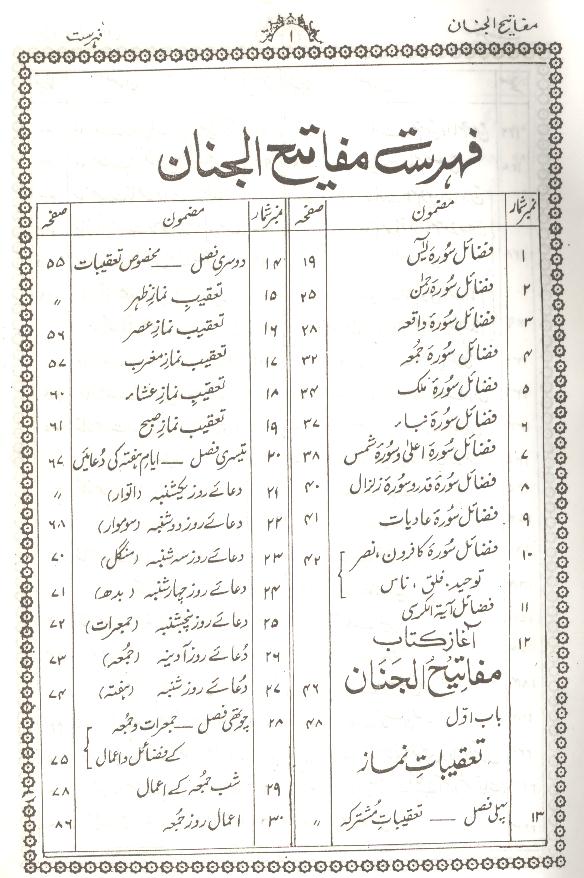 مفاتیح الجنان
۱
فہرست
فہرست مفاتیح الجنان
نمبر شمار مضمون صفحہ
۱ فضائل سورۂ یٰسٓ ۱۹
۲ فضائل سورۂ رحمٰن ۲۵
۳ فضائل سورۂ واقعہ ۲۸
۴ فضائل سورۂ جمعہ ۳۲
۵ فضائل سورۂ ملک ۳۴
۶ فضائل سورۂ نباء ۳۷
۷ فضائل سورۂ اعلیٰ و سورۂ شمس ۳۸
۸ فضائل سورۂ قدر و سورۂ زلزال ۴۰
۹ فضائل سورۂ عادیات ۴۱
۱۰ فضائل سورۂ کافرون، نصر ۴۲
توحید، فلق، ناس
۱۱ فضائل آیۃ الکرسی
۱۲ آغاز کتاب
مفاتیحُ الجَنَان ۴۶
باب اوّل ۴۸
تعقیباتِ نماز
۱۳ پہلی فصل — تعقیباتِ مشترکہ 〃
نمبر شمار مضمون صفحہ
۱۴ دوسری فصل — مخصوص تعقیبات ۵۵
۱۵ تعقیبِ نمازِ ظہر 〃
۱۶ تعقیب نمازِ عصر ۵۶
۱۷ تعقیب نمازِ مغرب ۵۷
۱۸ تعقیبِ نمازِ عشاء ۶۰
۱۹ تعقیب نمازِ صبح ۶۱
۲۰ تیسری فصل — ایام ہفتہ کی دُعائیں ۶۷
۲۱ دعائے روز یکشنبہ (اتوار) 〃
۲۲ دعائے روز دوشنبہ (سوموار) ۶۸
۲۳ دعائے روز سہ شنبہ (منگل) ۷۰
۲۴ دعائے روز چہار شنبہ (بدھ) ۷۱
۲۵ دعائے روز پنجشنبہ (جمعرات) ۷۲
۲۶ دُعائے روز آدینہ (جمعہ) ۷۳
۲۷ دُعائے روز شنبہ (ہفتہ) ۷۴
۲۸ چوتھی فصل — جمعرات و جمعہ
کے فضائل و اعمال ۷۵
۲۹ شب جمعہ کے اعمال ۷۸
۳۰ اعمال روز جمعہ ۸۶